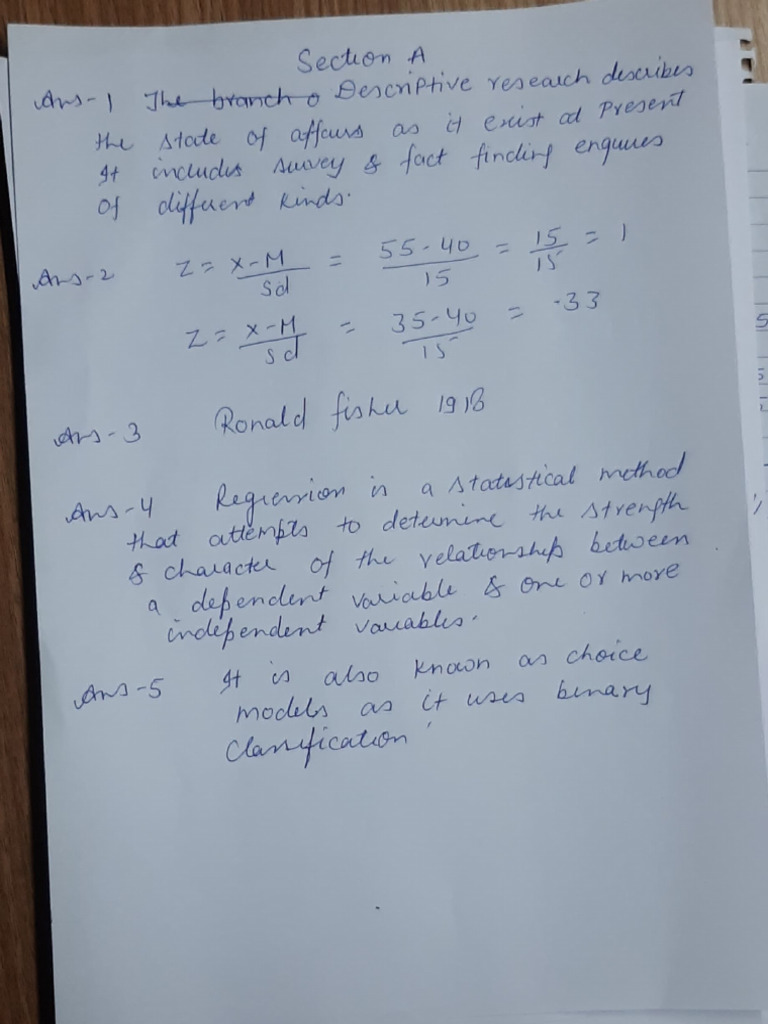 Section A
Ans-1 The branch o Descriptive research describes
the state of affairs as it exist at Present
It includes survey & fact finding enquires
of different kinds.
Ans-2 Z = X-M / Sd = 55-40 / 15 = 15 / 15 = 1
Z = X-M / Sd = 35-40 / 15 = -33
Ans-3 Ronald fisher 1918
Ans-4 Regression is a statistical method
that attempts to determine the strength
& character of the relationship between
a dependent variable & one or more
independent variables.
Ans-5 It is also known as choice
models as it uses binary
classification